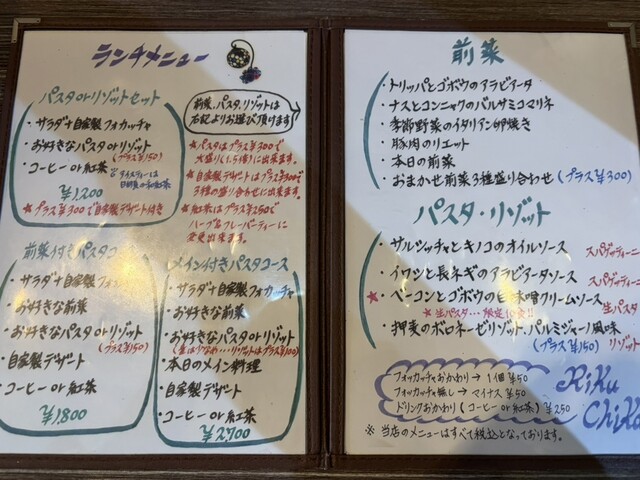 ランチメニュー
パスタorリゾットセット
・サラダ+自家製フォカッチャ
・お好きなパスタorリゾット
(プラス¥150)
・コーヒーor紅茶
※アイスティーは
日東紅茶
¥1,200
★プラス¥300で自家製デザート付き
前菜、パスタ、リゾットは
右記よりお選び頂けます
★パスタはプラス¥300で
大盛り(1.5倍)に出来ます。
★自家製デザートはプラス¥300で
3種の盛り合わせに出来ます。
★紅茶はプラス¥250で
ハーブ&フレーバーティーに
変更出来ます。
前菜付きパスタコース
・サラダ+自家製フォカッチャ
・お好きな前菜
・お好きなパスタorリゾット
(プラス¥150)
・自家製デザート
・コーヒーor紅茶
¥1,800
メイン付きパスタコース
・サラダ+自家製フォカッチャ
・お好きな前菜
・お好きなパスタorリゾット
(量は少なめ…リゾットはプラス¥100)
・本日のメイン料理
・自家製デザート
・コーヒーor紅茶
¥2,700
前菜
・トリッパとゴボウのアラビアータ
・ナスとコンニャクのバルサミコマリネ
・季節野菜のイタリアン卵焼き
・豚肉のリエット
・本日の前菜
・おまかせ前菜3種盛り合わせ(プラス¥300)
パスタ・リゾット
・サルシッチャとキノコのオイルソース スパゲッティーニ
・イワシと長ネギのアラビアータソース スパゲッティーニ
★・ベーコンとゴボウの白味噌クリームソース 生パスタ
★生パスタ…限定10食!!
・押麦のボロネーゼリゾット、パルミジャーノ風味
(プラス¥150) リゾット
フォッカッチャおかわり→1個¥50
フォッカッチャ無し→マイナス¥50
ドリンクおかわり(コーヒーor紅茶)¥250
Riku
Chika
※当店のメニューはすべて税込となっております。